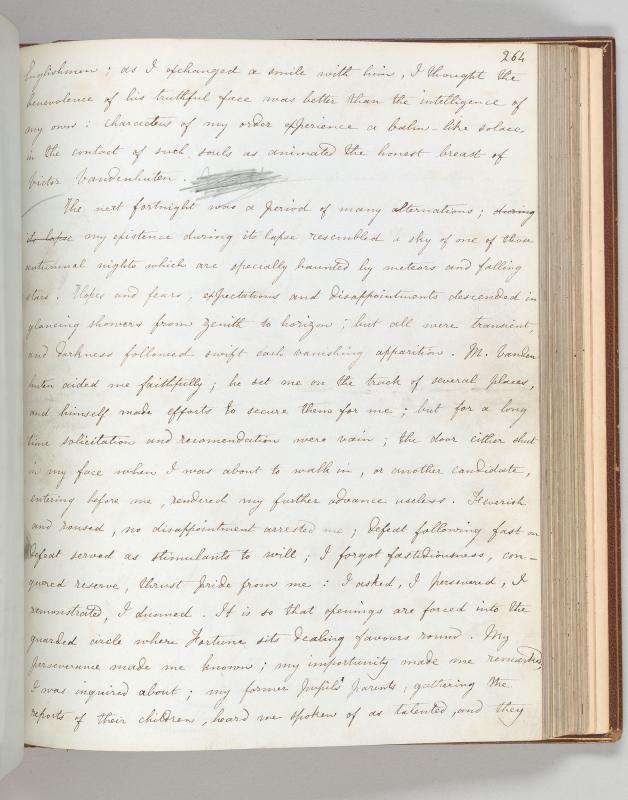 264
Englishmen; as I exchanged a smile with him, I thought the
benevolence of his truthful face was better than the intelligence of
my own: characters of my order experience a balm-like solace
in the contact of such souls as animated the honest breast of
Victor Vandenhuten.
The next fortnight was a period of many alternations; during
its lapse my existence during its lapse resembled a sky of one of those
autumnal nights which are specially haunted by meteors and falling
stars. Hopes and fears, expectations and disappointments descended in
glancing showers from zenith to horizon; but all were transient,
and darkness followed swift each vanishing apparition. M. Vanden
huten aided me faithfully; he set me on the track of several places,
and himself made efforts to secure them for me; but for a long
time solicitation and recomendation were vain; the door either shut
in my face when I was about to walk in, or another candidate,
entering before me, rendered my further advance useless. Feverish
and roused, no disappointment arrested me; defeat following fast on
defeat served as stimulants to will; I forgot fastidiousness, con-
quered reserve, thrust pride from me: I asked, I persevered, I
remonstrated, I dunned. It is so that openings are forced into the
guarded circle where Fortune sits dealing favours round. My
perseverance made me known; my importunity made me remarked,
I was inquired about; my former pupils' parents, gathering the
reports of their children, heard me spoken of as talented, and they